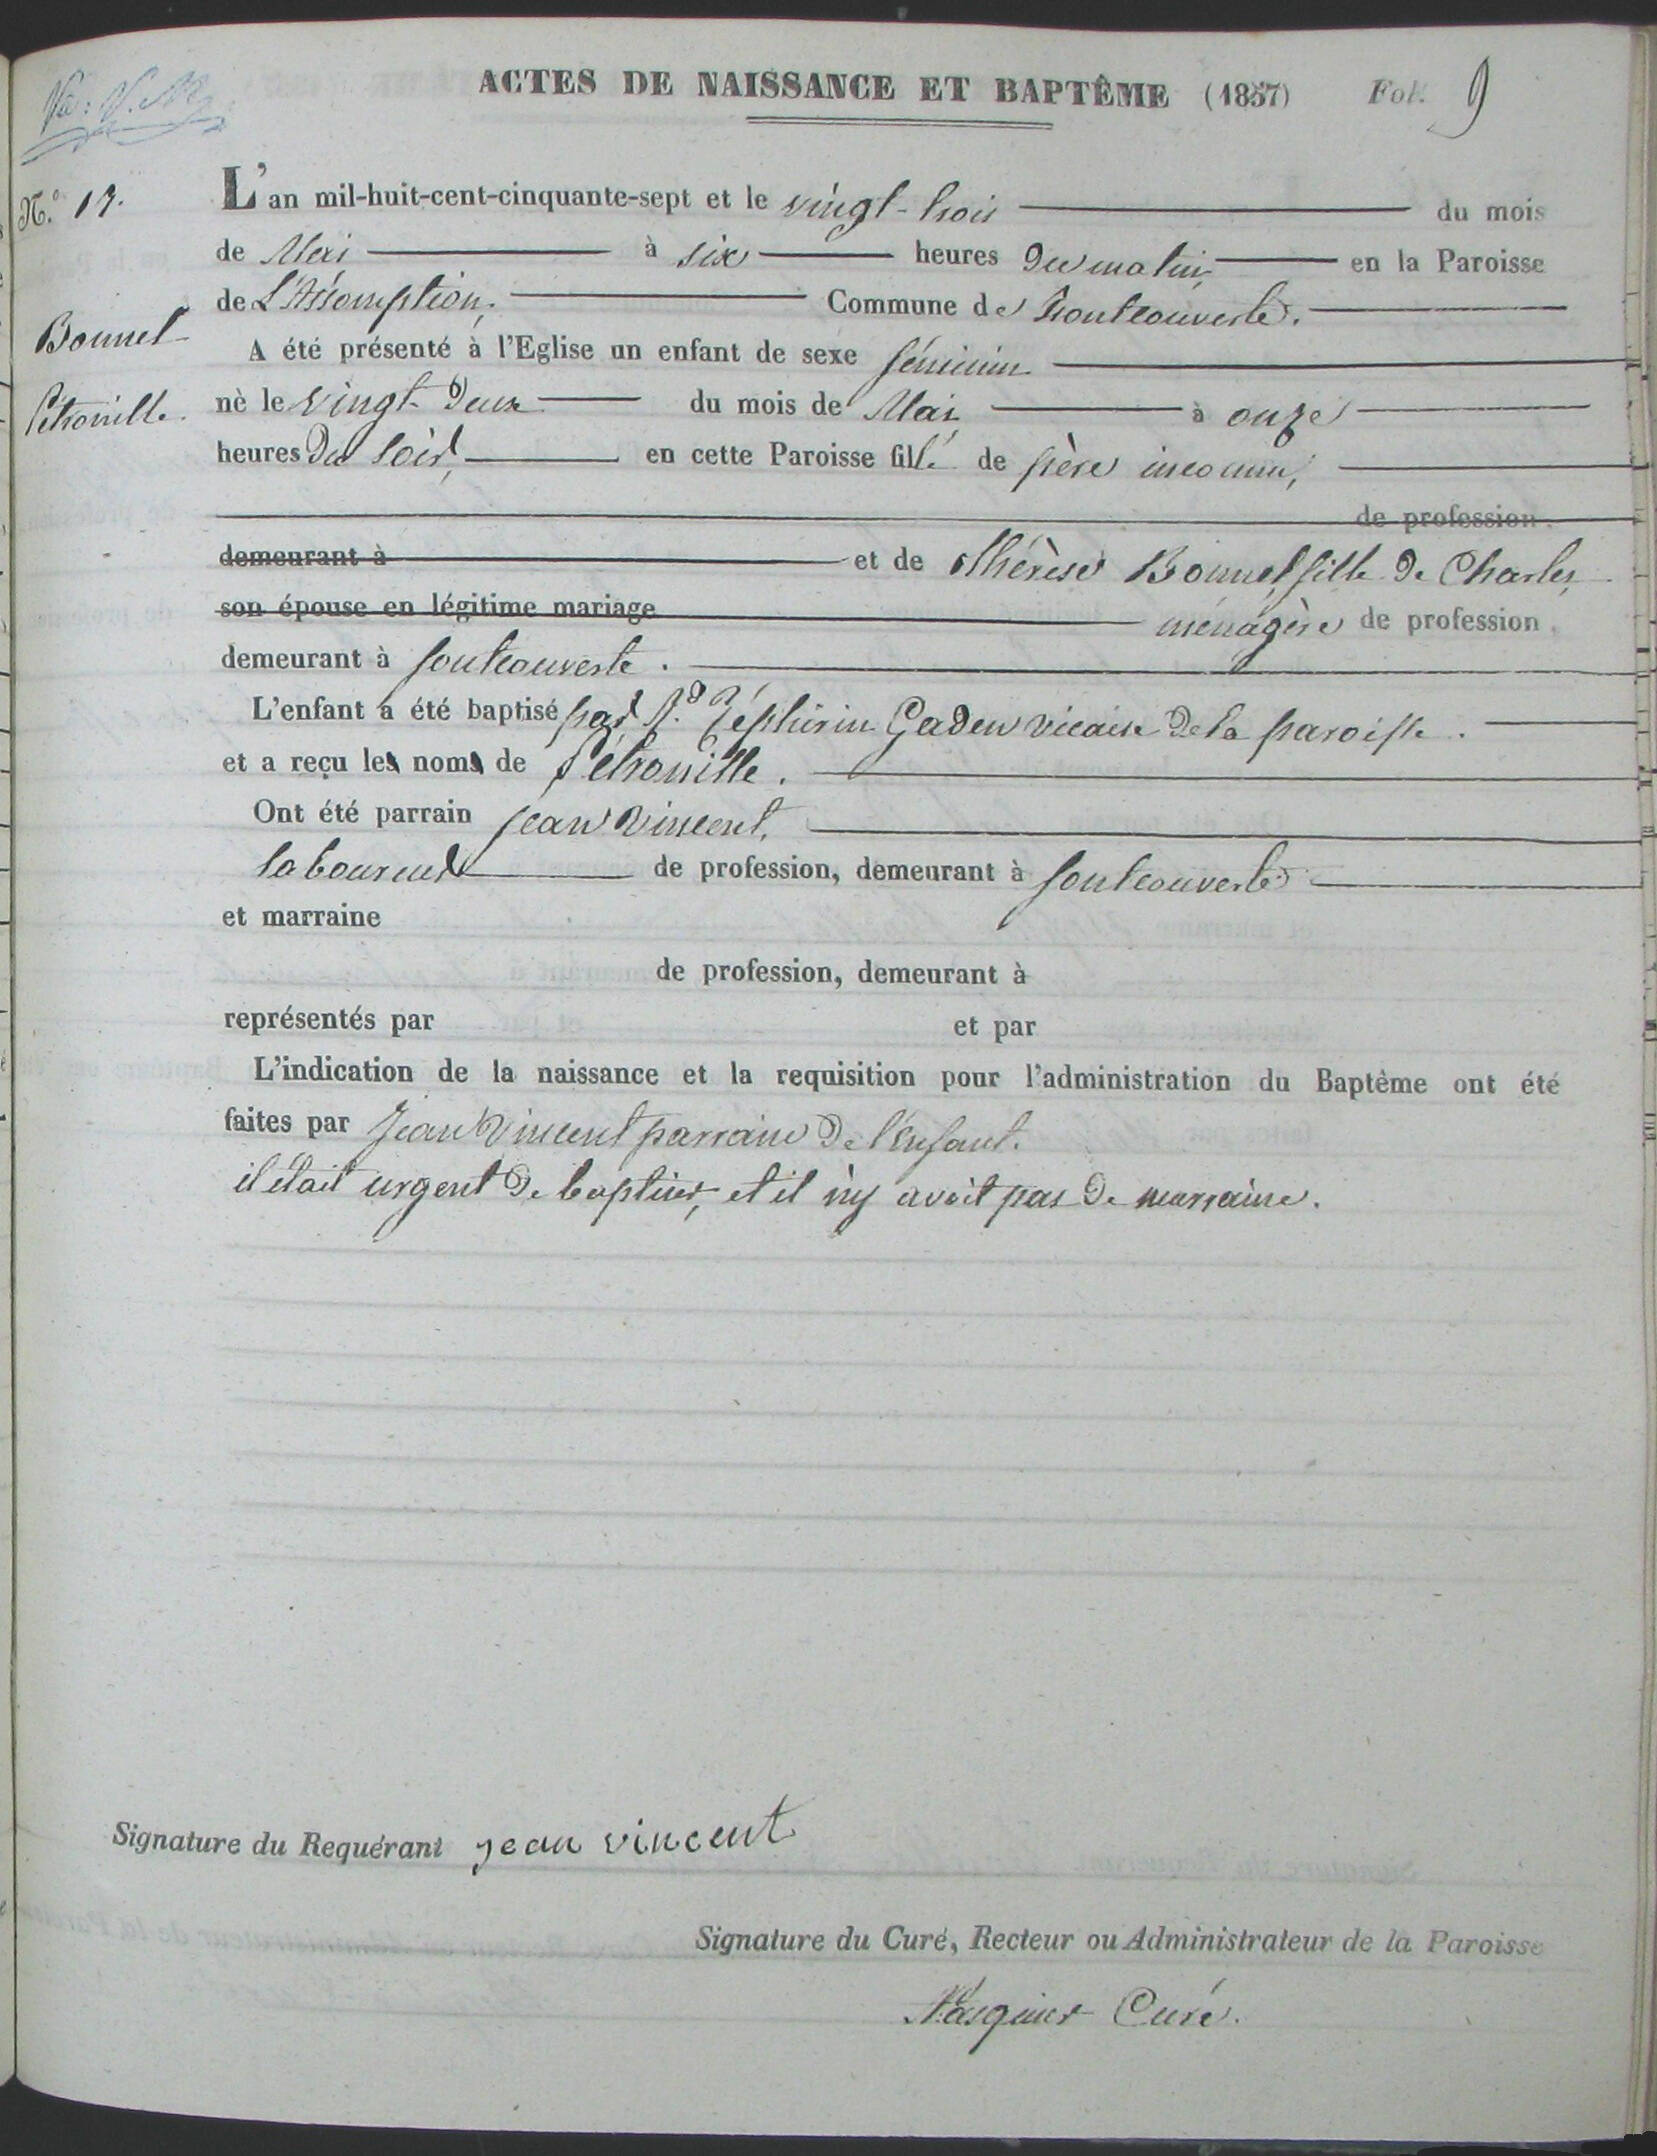 ACTES DE NAISSANCE ET BAPTÊME (1857) Fol. 9
N.º 17.
L'an mil-huit-cent-cinquante-sept et le vingt-trois du mois
de Mai à six heures du matin, en la Paroisse
de L'Assomption, Commune de Fontcouverte.
Bonnet
Pétronille.
A été présenté à l'Eglise un enfant de sexe féminin
nè le vingt-deux du mois de Mai à onze
heures du soir, en cette Paroisse fille de père inconnu,
de profession
demeurant à et de Thérèse Bonnet, fille de Charles,
son épouse en légitime mariage ménagère de profession
demeurant à fontcouverte.
L'enfant a été baptisé par R.d Zéphirin Gaden vicaire de la paroisse.
et a reçu les noms de Pétronille.
Ont été parrain jean vincent,
laboureur de profession, demeurant à fontcouverte
et marraine
de profession, demeurant à
représentés par et par
L'indication de la naissance et la requisition pour l'administration du Baptème ont été
faites par Jean Vincent parrain de l'enfant.
il était urgent de baptiser, et il n'y avait pas de marraine.
Signature du Requérant jean vincent
Signature du Curé, Recteur ou Administrateur de la Paroisse
Pasquier Curé.